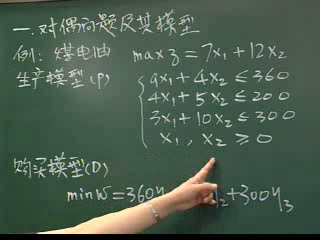 一.对偶问题及其模型
例:煤电油 max z = 7x₁ + 12x₂
生产模型(P)
9x₁ + 4x₂ ≤ 360
4x₁ + 5x₂ ≤ 200
3x₁ + 10x₂ ≤ 300
x₁ , x₂ ≥ 0
购买模型(D)
min W = 360y y₂ + 300y₃